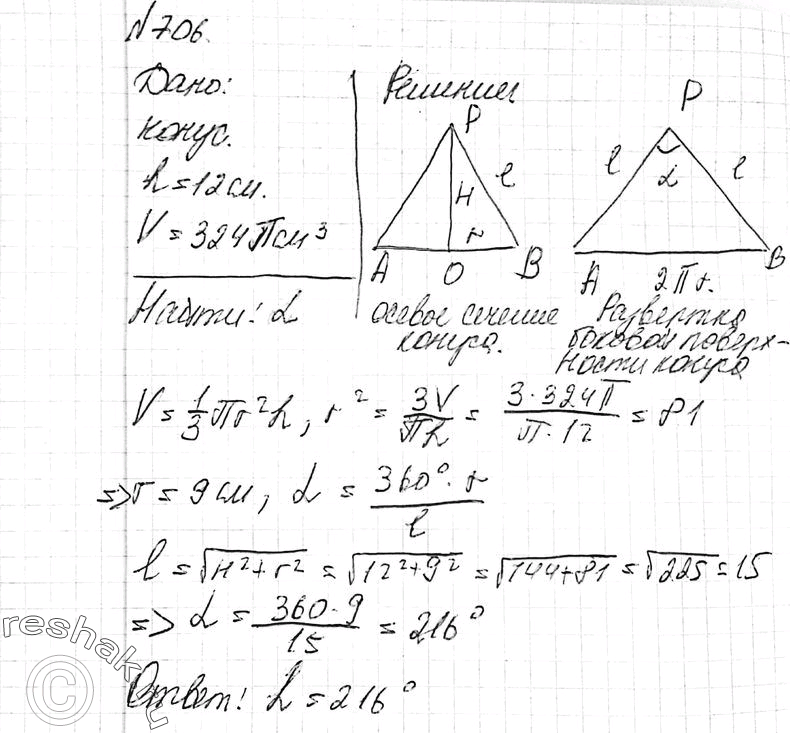 №706.
Дано:
конус.
h=12см.
V=324πсм³
Найти: α
Решение
P
H
l
r
A
O
B
осевое сечение
конуса.
P
l
α
l
A
2πr.
B
Развертка
боковой поверх-
ности конуса
V=1/3πr²h, r²=3V/πh=3·324π/π·12=81
=>r=9см, α=360°·r/l
l=√H²+r²=√12²+9²=√144+81=√225=15
=> α=360·9/15=216°
Ответ: h=216°
reshak.ru
©